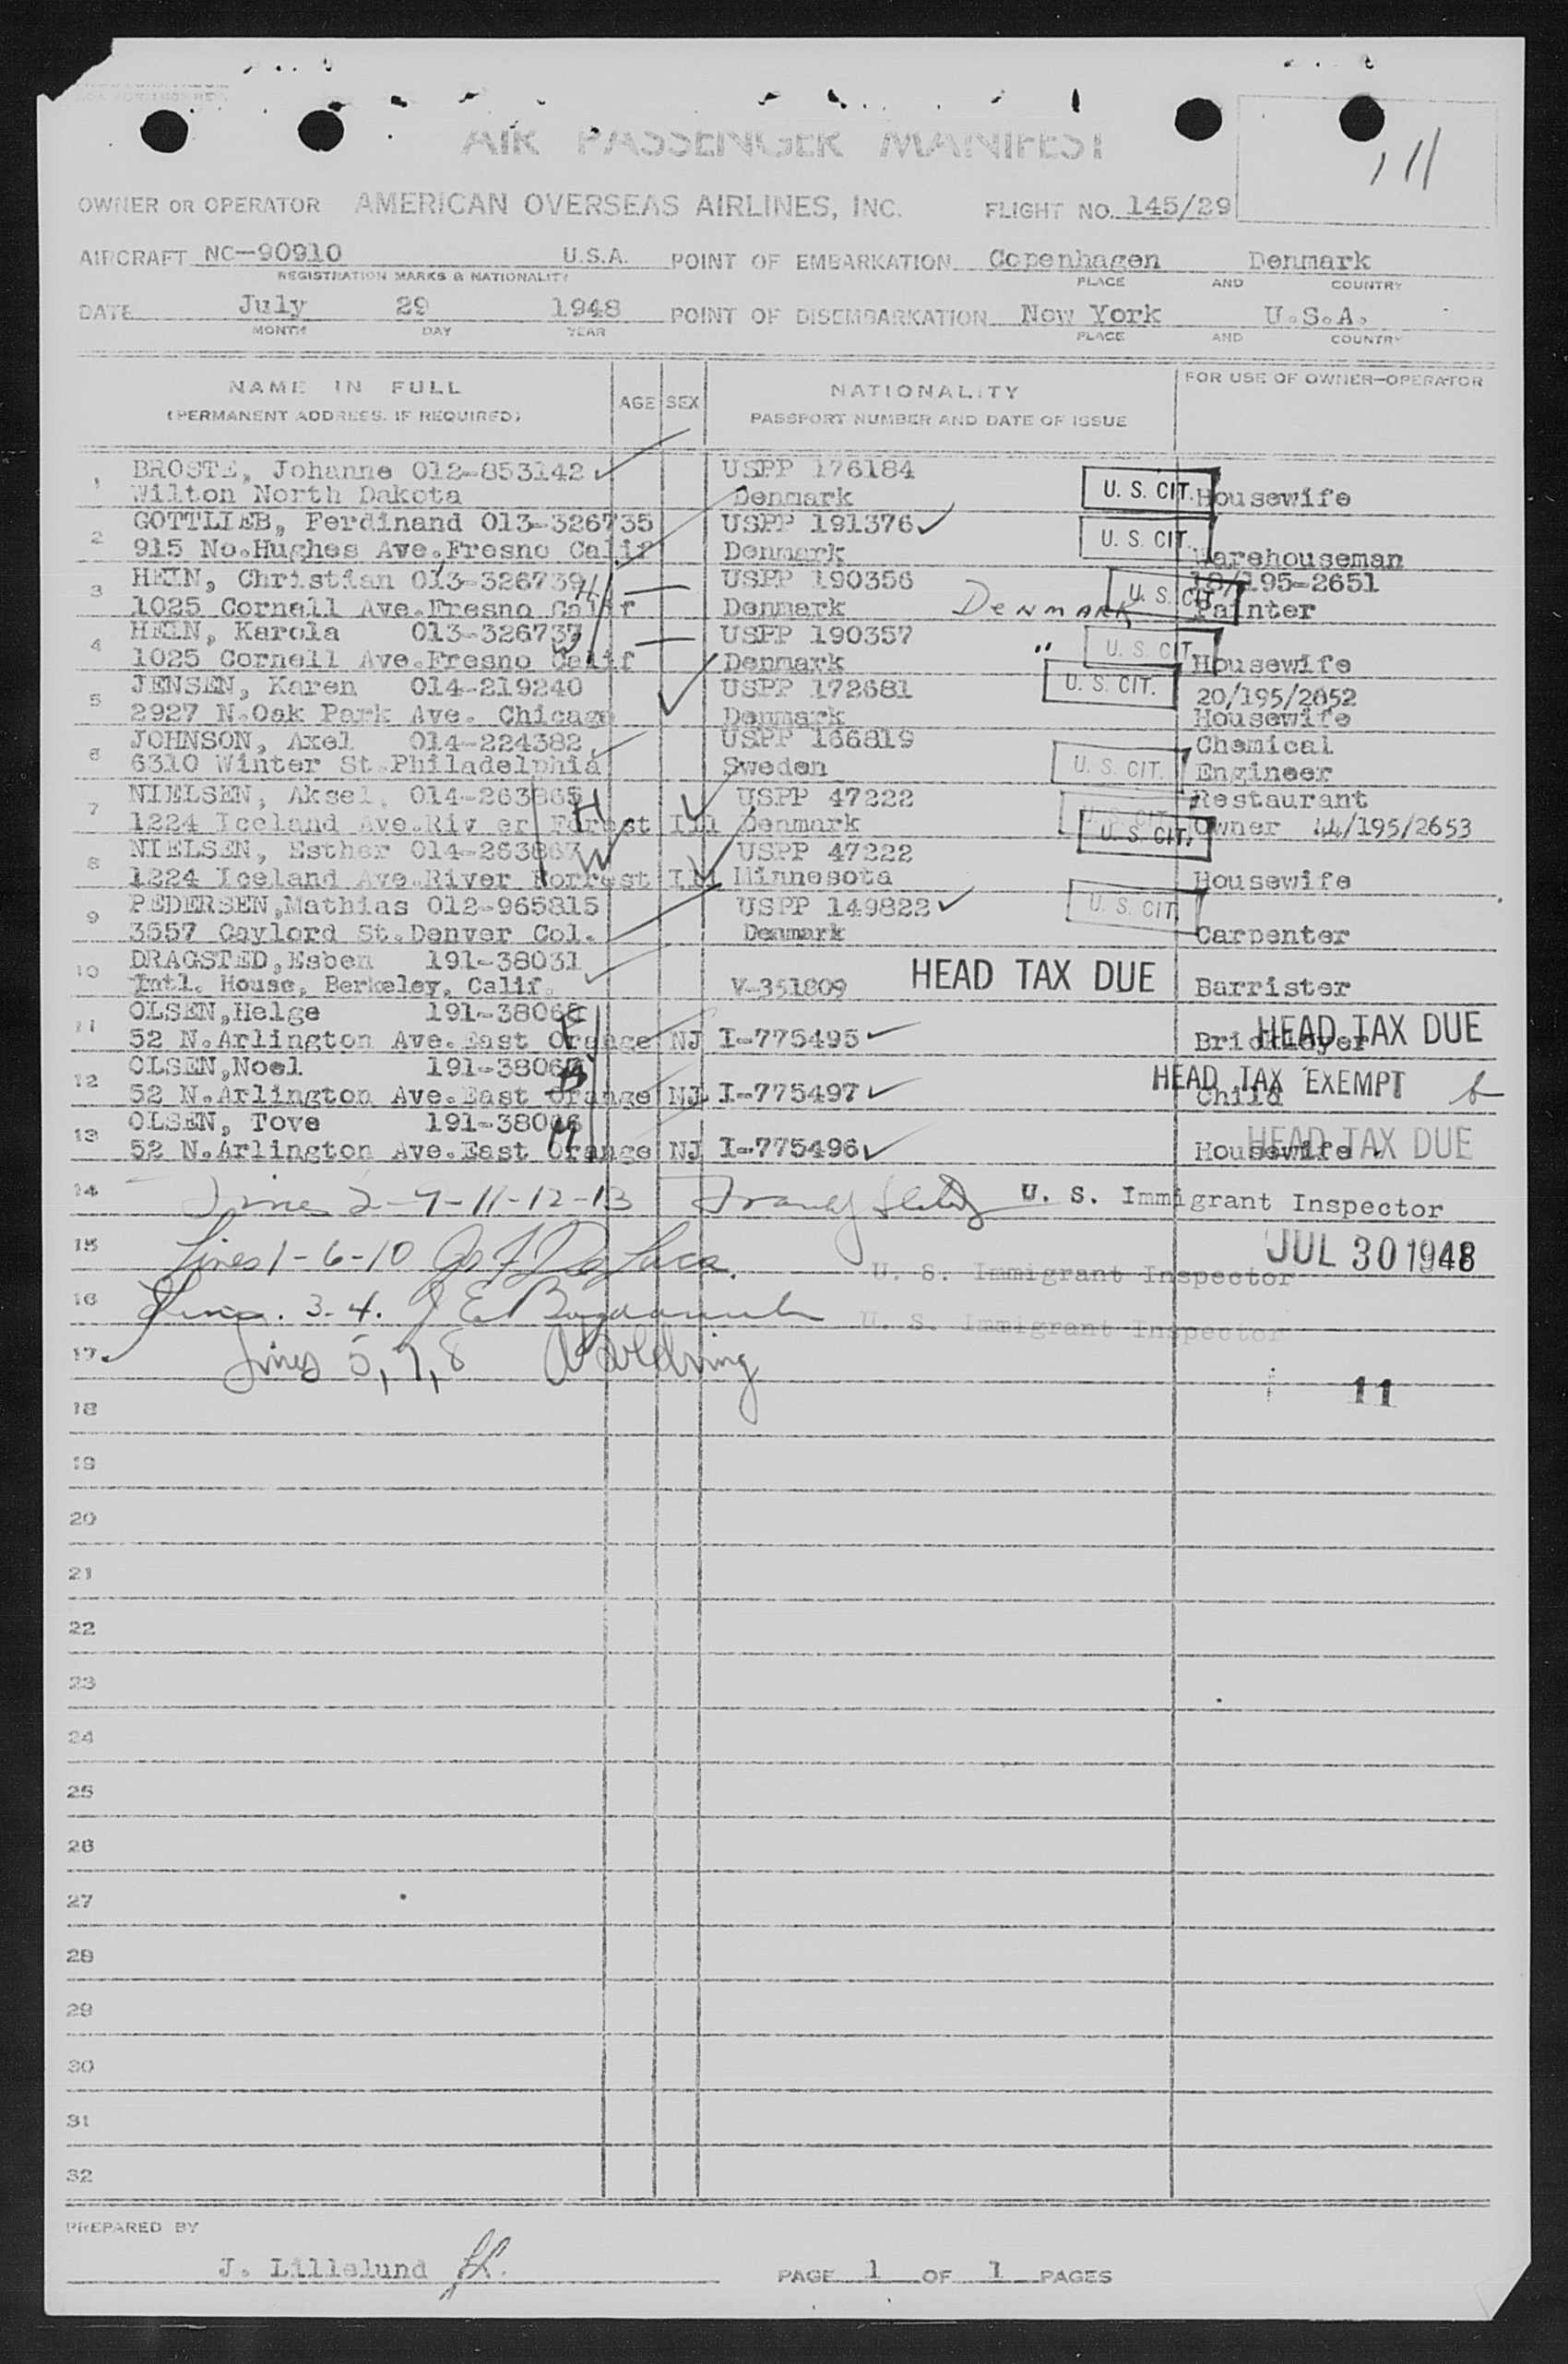 AIR PASSENGER MANIFEST
111
OWNER OR OPERATOR AMERICAN OVERSEAS AIRLINES, INC. FLIGHT NO. 145/29
AIRCRAFT NC-90910 U.S.A. POINT OF EMBARKATION Copenhagen Denmark
REGISTRATION MARKS & NATIONALITY PLACE AND COUNTRY
DATE July 29 1948 POINT OF DISEMBARKATION New York U.S.A.
MONTH DAY YEAR PLACE AND COUNTRY
NAME IN FULL AGE SEX NATIONALITY FOR USE OF OWNER-OPERATOR
(PERMANENT ADDRESS, IF REQUIRED) PASSPORT NUMBER AND DATE OF ISSUE
1 BROSTE, Johanne 012-853142 USPP 176184
Wilton North Dakota Denmark U. S. CIT. Housewife
2 GOTTLIEB, Ferdinand 013-326735 USPP 191376
915 No.Hughes Ave.Fresno Calif Denmark U. S. CIT. Warehouseman
3 HEIN, Christian 013-326739 H USPP 190356 18/195-2651
1025 Cornell Ave.Fresno Calif Denmark DENMARK U. S. CIT. Painter
4 HEIN, Karola 013-326737 W USPP 190357
1025 Cornell Ave.Fresno Calif Denmark " U. S. CIT. Housewife
5 JENSEN, Karen 014-219240 USPP 172681 U. S. CIT. 20/195/2652
2927 N.Oak Park Ave. Chicago Denmark Housewife
6 JOHNSON, Axel 014-224382 USPP 166819 Chemical
6310 Winter St.Philadelphia Sweden U. S. CIT. Engineer
7 NIELSEN, Aksel, 014-263865 H USPP 47222 Restaurant
1224 Iceland Ave.Riv er Forest Ill Denmark U. S. CIT. Owner 44/195/2653
8 NIELSEN, Esther 014-263867 W USPP 47222 U. S. CIT.
1224 Iceland Ave.River Forrest Ill Minnesota Housewife
9 PEDERSEN,Mathias 012-965815 USPP 149822 U. S. CIT.
3557 Gaylord St.Denver Col. Denmark Carpenter
10 DRAGSTED,Esben 191-38031 HEAD TAX DUE
Intl. House, Berkeley, Calif. V-351809 Barrister
11 OLSEN,Helge F HEAD TAX DUE
52 N.Arlington Ave.East Orange NJ I-775495 Bricklayer
12 OLSEN,Noel HEAD TAX EXEMPT
52 N.Arlington Ave.East Orange NJ I-775497 Child
13 OLSEN, Tove M HEAD TAX DUE
52 N.Arlington Ave.East Orange NJ I-775496 Housewife
14 Lines 2-9-11-12-13 U. S. Immigrant Inspector
15 Lines 1-6-10 JUL 30 1948
U. S. Immigrant Inspector
16 Lines. 3-4. J E
U. S. Immigrant Inspector
17 Lines 5, 7, 8
11
18
19
20
21
22
23
24
25
26
27
28
29
30
31
32
PREPARED BY
J. Lillelund PAGE 1 OF 1 PAGES